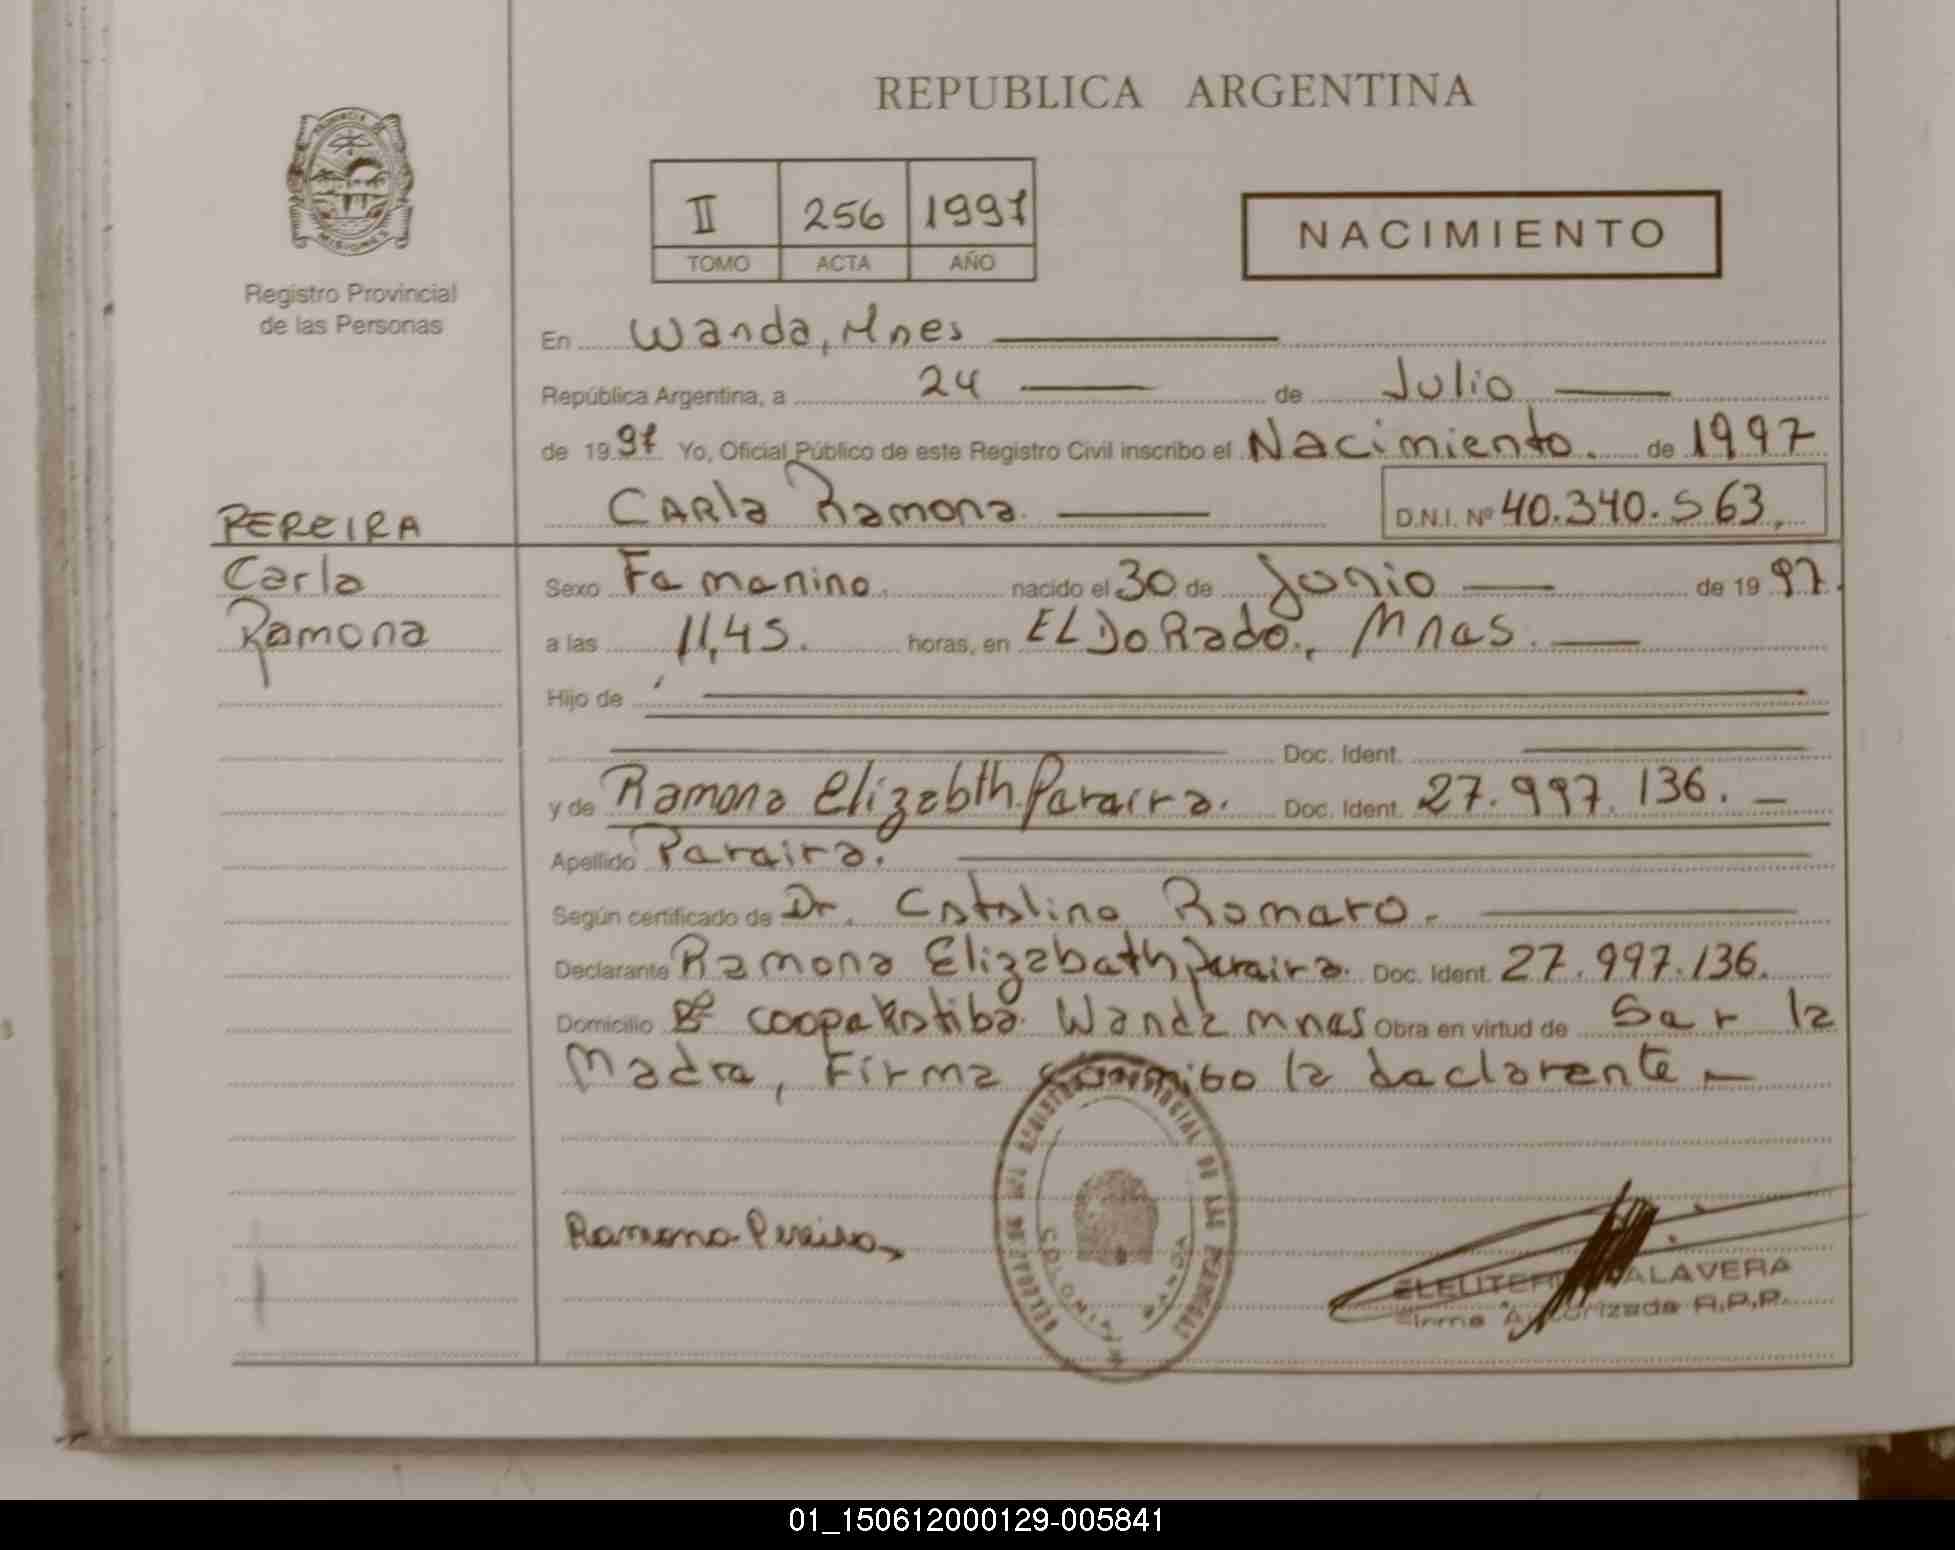 REPUBLICA ARGENTINA
PROVINCIA DE
MISIONES
Registro Provincial
de las Personas
II 256 1997
TOMO ACTA AÑO
NACIMIENTO
En Wanda, Mnes
República Argentina, a 24 de Julio
de 1997 Yo, Oficial Público de este Registro Civil inscribo el Nacimiento. de 1997
PEREIRA
Carla
Ramona
CARla Ramona D.N.I. Nº 40.340.563.
Sexo Femenino. nacido el 30 de Junio de 1997.
a las 11,45. horas, en ELDoRado., Mnes.
Hijo de
Doc. Ident.
y de Ramona Elizabth Pereira. Doc. Ident. 27.997.136.
Apellido Pereira.
Según certificado de Dr. Catalino Romero.
Declarante Ramona Elizabeth Pereira. Doc. Ident. 27.997.136.
Domicilio Bº Wanda mnes Obra en virtud de Ser la
Madre, Firma la declarente
Ramona Pereira
REGISTRO PROVINCIAL DE LAS PERSONAS
WANDA
ALAVERA
Firma Autorizada R.P.P.
01_150612000129-005841